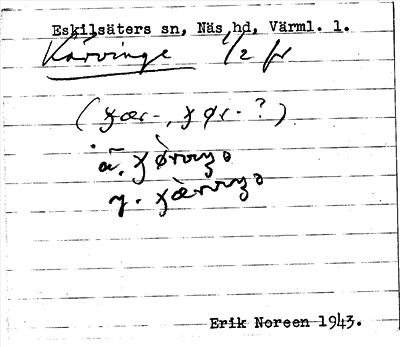 Eskilsäters sn, Näs hd, Värml. l.
Kärvinge 1/2 fr
(ɣær-, ɣør-?)
ä. ɣørvıŋə
y. ɣærvıŋə
Erik Noreen 1943.